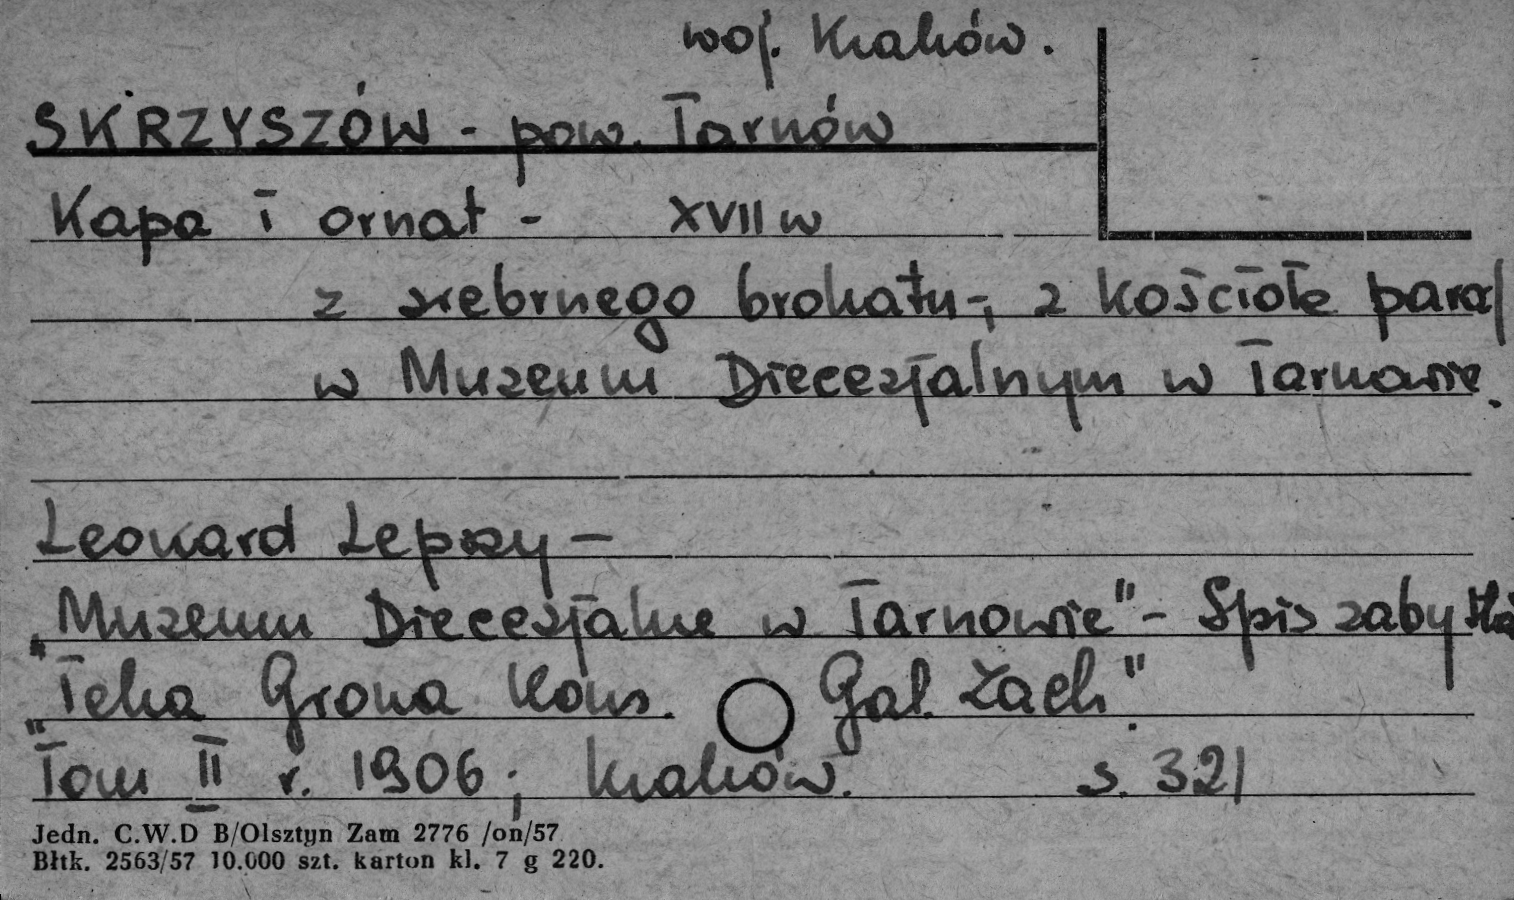 woj. Kraków.
SKRZYSZÓW - pow. Tarnów
Kapa i ornat - XVII w
z srebrnego brokatu-, z kościoła paraf
w Muzeum Diecezjalnym w Tarnowie.
Leonard Lepszy -
"Muzeum Diecezjalne w Tarnowie" - Spis zabytków
"Teka Grona Kons. Gal. Zach."
Tom II r. 1906; Kraków. s. 321
Jedn. C.W.D B/Olsztyn Zam 2776 /on/57
Błtk. 2563/57 10.000 szt. karton kl. 7 g 220.